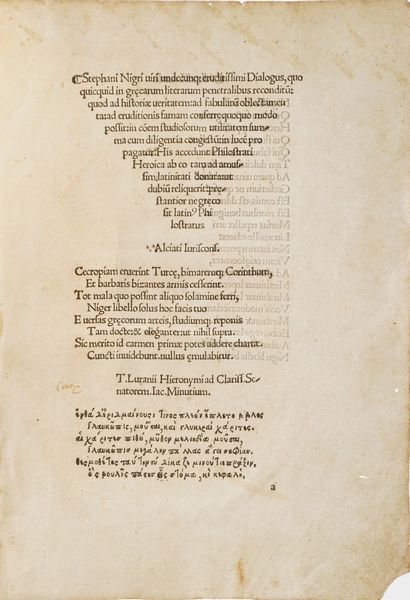 ¶Stephani Nigri uiri undecunq; eruditissimi Dialogus, quo
quicquid in gręcarum literarum penetralibus reconditū:
quod ad historiæ ueritatem: ad fabularū oblectamen
ta: ad eruditionis famam conferre quoquo modo
possit: in cōem studiosorum utilitatem sum-
ma cum diligentia congestū: in lucē pro
pagatur. His accedunt Philostrati
Heroica ab eo tam ad amus-
sim latinitati donata: ut
dubiū reliquerit: prę-
stantior ne gręco
sit latinꝰ Phi
lostratus
Alciati Iurisconf.
Cecropiam eruerint Turcę, bimaremq; Corinthum,
Et barbaris bizantes armis cesserint.
Tot mala quo possint aliquo solamine ferri,
Niger libello solus hoc facit tuo
Euersas gręcorum arteis, studiumq; reponis
Tam docte: & eleganter: ut nihil supra.
Sic merito id carmen primæ potes addere chartæ.
Cuncti inuidebunt. nullus ęmulabitur.
T. Luranii Hieronymi ad Clariss. Se-
natorem. Iac. Minutium.
πλέον ἔπλετο βίβλος
Γλαυκῶπις, μοῦσαι, καὶ γλυκεραὶ χάριτες.
αἱ χάριτες πιθὼ, μοῦσαι,
Γλαυκῶπις μεγάλην παλλὰς σοφίαν.
στόμα, κεφαλὴ,
a